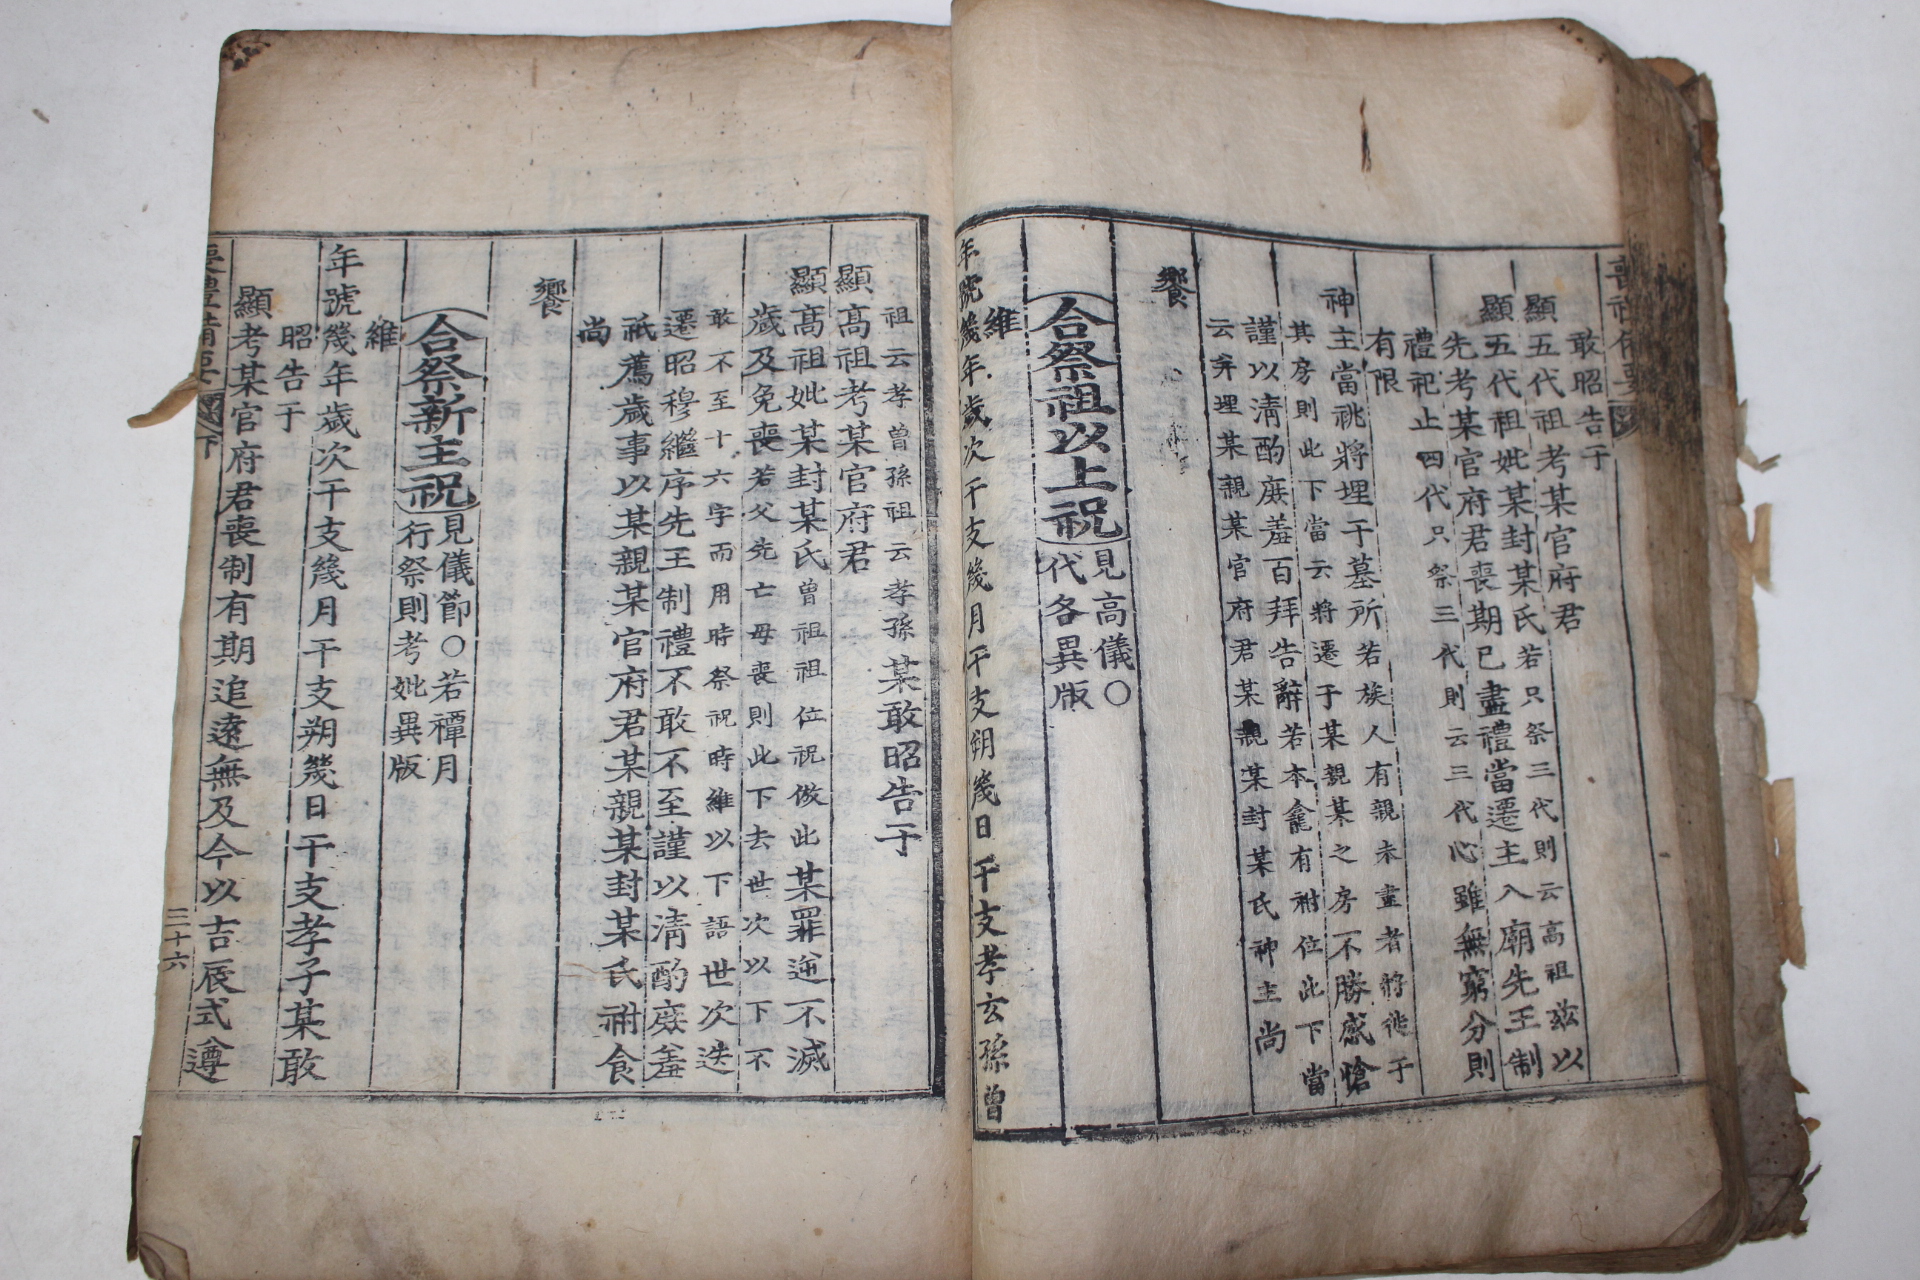 喪禮備要
敢昭告于
顯五代祖考某官府君
顯五代祖妣某封某氏若只祭三代則云高祖玆以
先考某官府君喪期已盡禮當遷主入廟先王制
禮祀止四代只祭三代則云三代心雖無窮分則
有限
神主當祧將埋于墓所若族人有親未盡者將徙于
其房則此下當云將遷于某親某之房不勝感愴
謹以淸酌庶羞百拜告辭若本龕有祔位此下當
云幷埋某親某官府君某親某封某氏神主尚
饗
合祭祖以上祝見高儀〇代各異版
維
年號幾年歲次干支幾月干支朔幾日干支孝玄孫曾
祖云孝曾孫祖云孝孫某敢昭告于
顯高祖考某官府君
顯高祖妣某封某氏曾祖祖位祝倣此某罪逆不滅
歲及免喪若父先亡母喪則此下去世次以下不
敢不至十六字而用時祭祝時維以下語世次迭
遷昭穆繼序先王制禮不敢不至謹以淸酌庶羞
祗薦歲事以某親某官府君某親某封某氏祔食
尚
饗
合祭新主祝見儀節〇若禫月行祭則考妣異版
維
年號幾年歲次干支幾月干支朔幾日干支孝子某敢
昭告于
顯考某官府君喪制有期追遠無及今以吉辰式遵
喪禮備要
下
三十六